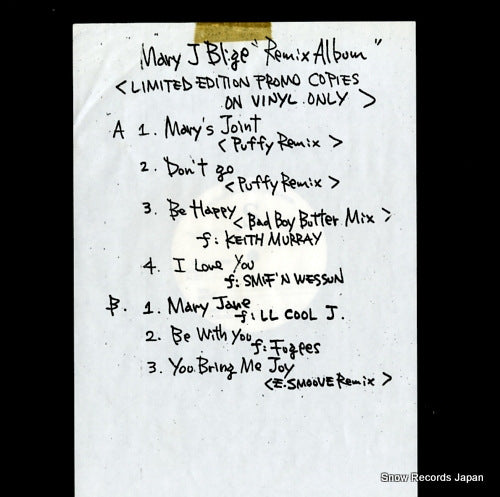 Mary J Blige "Remix Album"
< LIMITED EDITION PROMO COPIES
ON VINYL ONLY >
A 1. Mary's Joint
< Puffy Remix >
2. Don't go
< Puffy Remix >
3. Be Happy < Bad Boy Butter Mix >
f: KEITH MURRAY
4. I Love You
f: SMIF'N WESSUN
B. 1. Mary Jane
f: LL COOL J.
2. Be With You
f: Fugees
3. You Bring Me Joy
< E-SMOOVE Remix >
Snow Records Japan